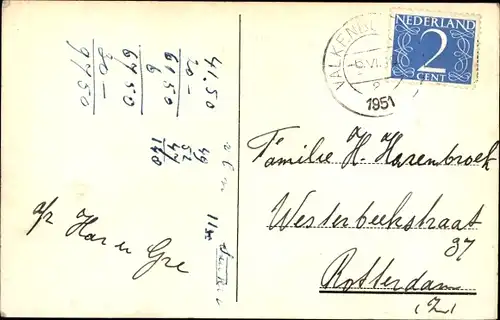 NEDERLAND
2
CENT
VALKENBU
-6.VI.
1951
Familie H. Harenbroek
Westerbeekstraat
37
Rotterdam
(Z)
41.50
20 -
61 50
6
67 50
30 -
97 50
49
52
47
140
a/z Har en Gre